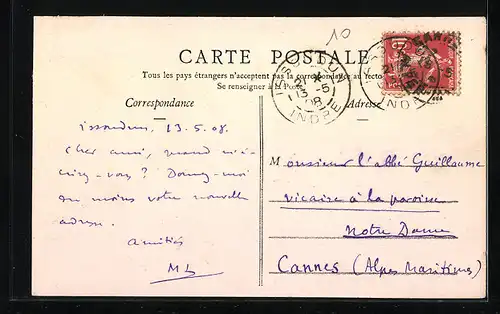 10
CARTE POSTALE
Tous les pays étrangers n'acceptent pas la correspondance au recto
Se renseigner à la Poste
Correspondance
Adresse
ISSOUDUN
21
5
08
INDRE
Issoudun, 13.5.08.
Cher ami, quand m'é-
crirez-vous ? Donnez-moi
au moins votre nouvelle
adresse.
Amitiés
ML
Monsieur l'abbé Guillaume
vicaire à la paroisse
Notre Dame
Cannes (Alpes Maritimes)